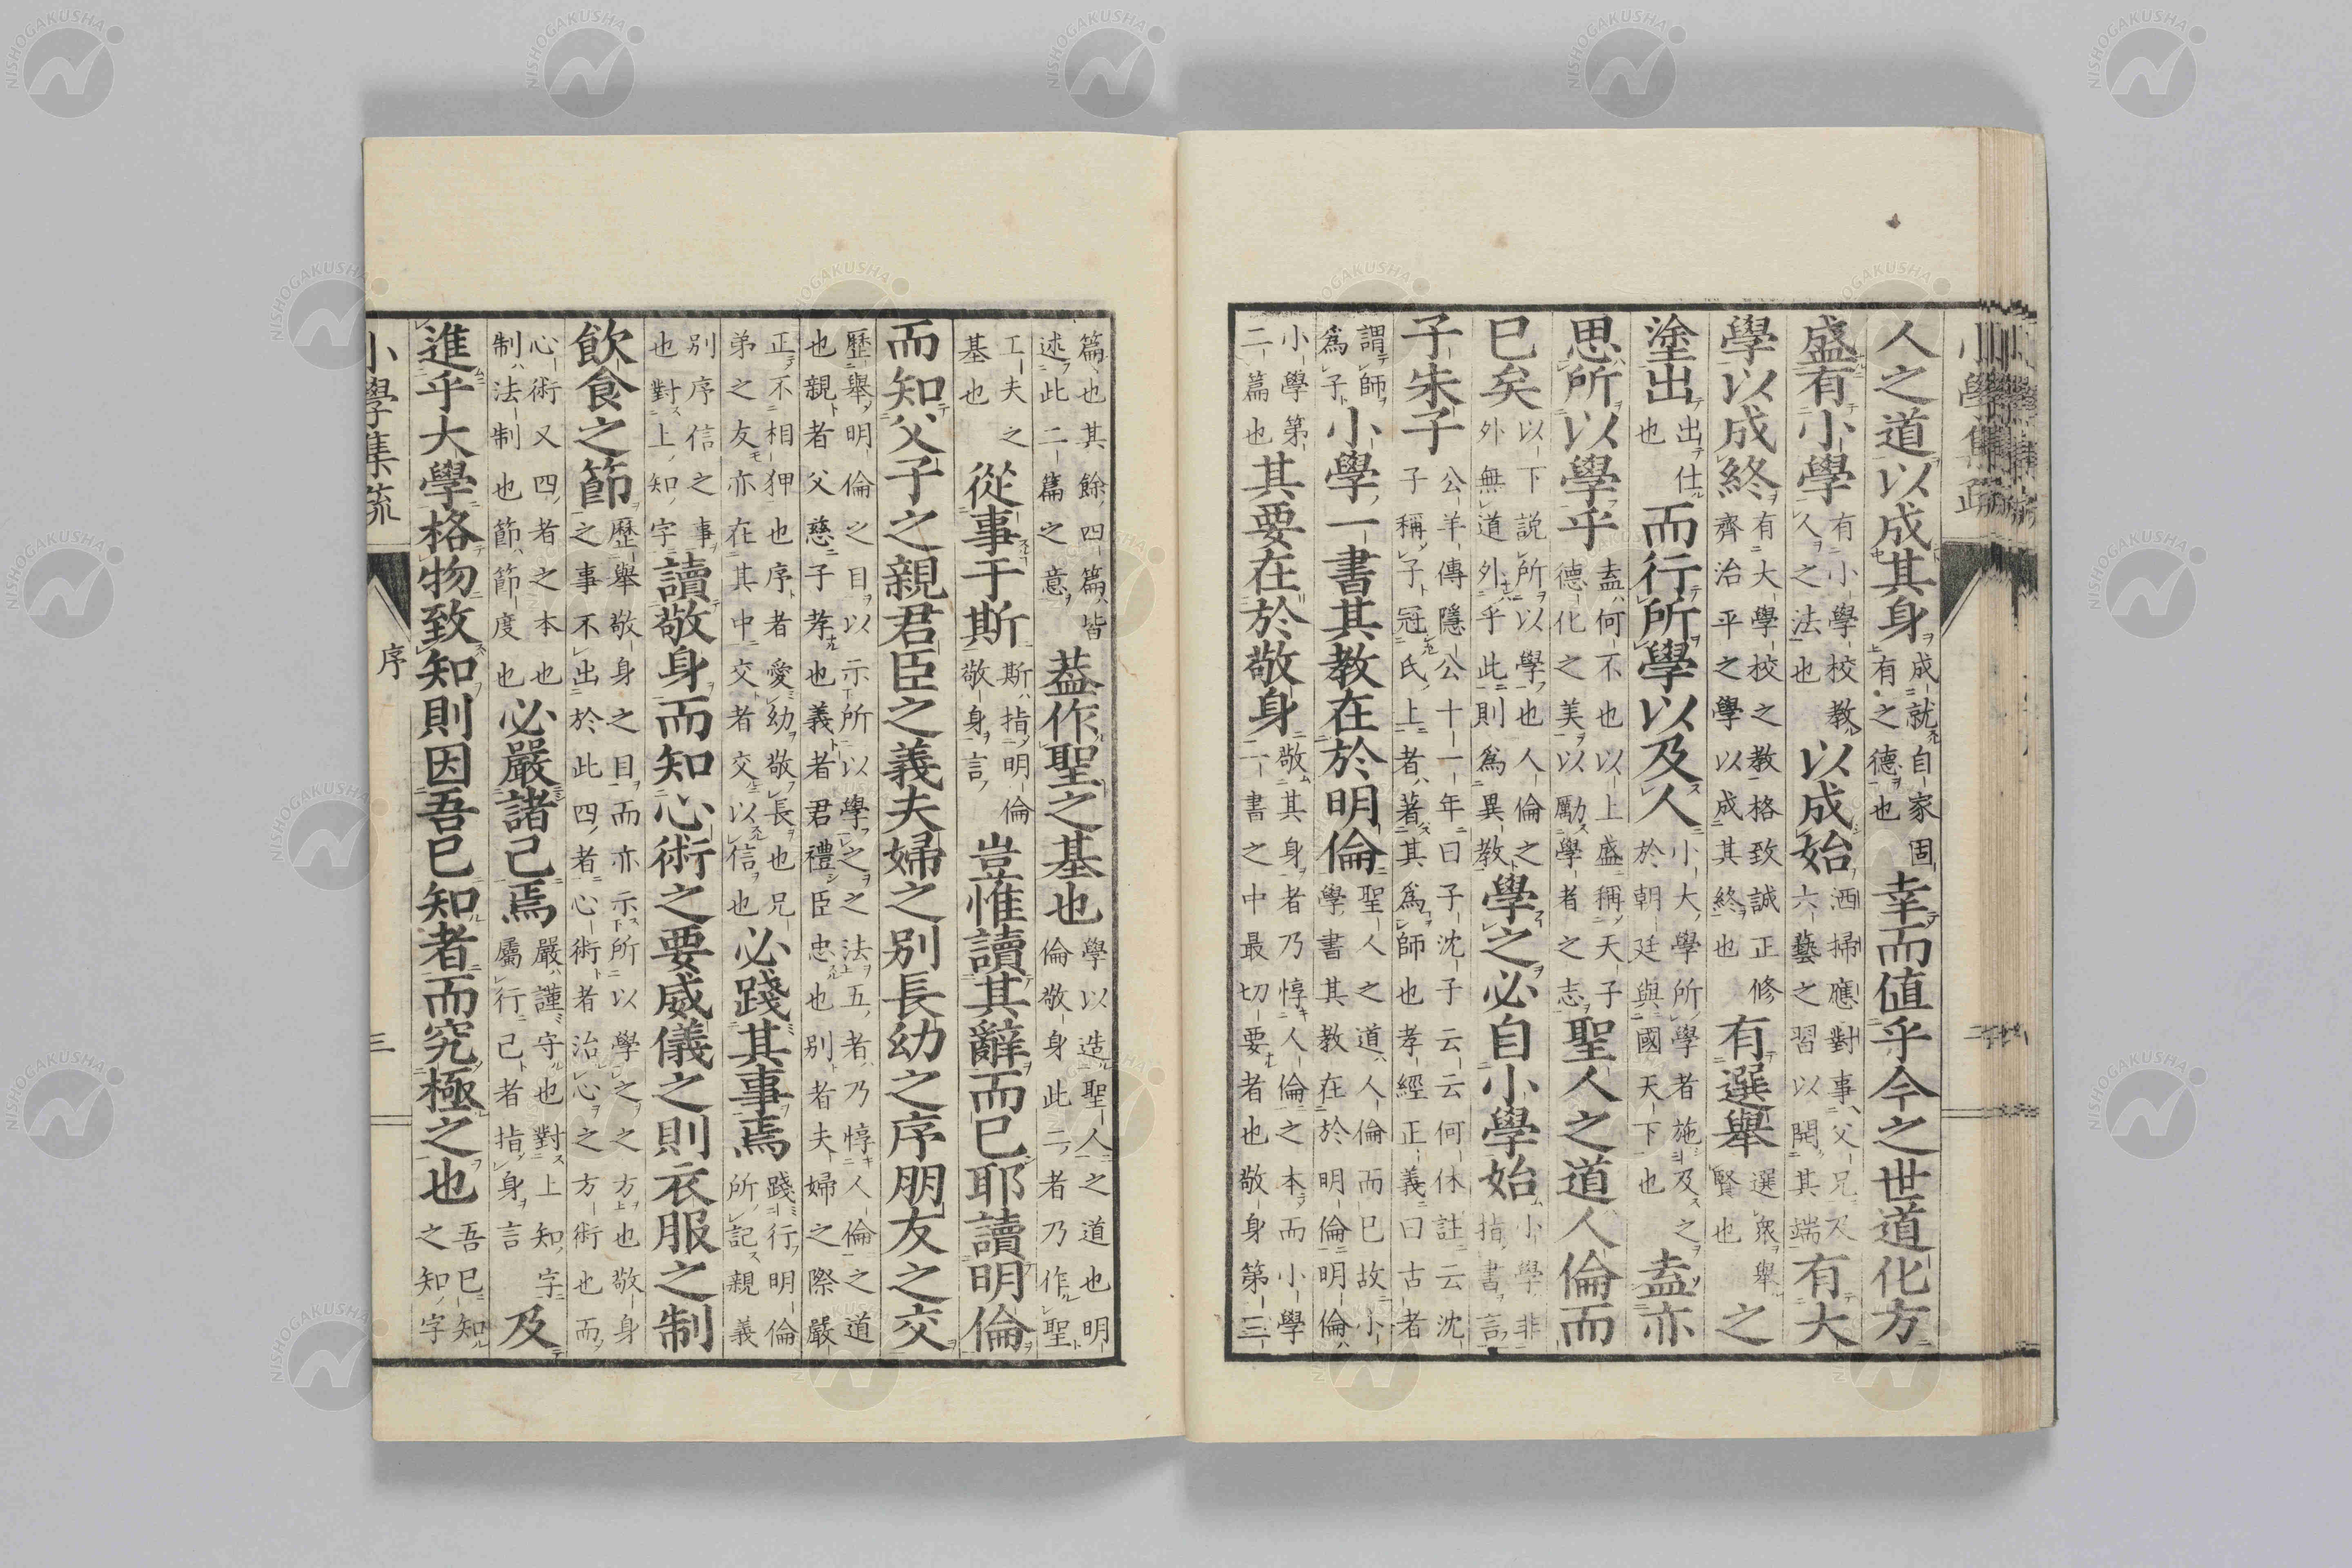 人之道以成其身成就自家固有之德也幸而値乎今之世道化方
盛有小學有小學校教人之法也以成始洒掃應對事父兄又六藝之習以開其端有大
學以成終有大學校之教格致誠正修齊治平之學以成其終也有選舉選衆舉賢也之
塗出出仕也而行所學以及人小大學所學者施及之於朝廷與國天下也盍亦
思所以學乎盍何不也以上盛稱天子德化之美以勵學者之志聖人之道人倫而
已矣以下説所以學也人倫之外無道外乎此則爲異教學之必自小學始小學非指書言
子朱子公羊傳隱公十一年曰子沈子云云何休註云沈子稱子冠氏上者著其爲師也孝經正義曰古者
謂師爲子小學一書其教在於明倫聖人之道人倫而已故小學書其教在於明倫明倫
小學第二篇也其要在於敬身敬其身者乃惇人倫之本而小學一書之中最切要者也敬身第三
篇也其餘四篇皆述此二篇之意蓋作聖之基也學以造聖人之道也明倫敬身此二者乃作聖
工夫之基也從事于斯斯指明倫敬身言豈惟讀其辭而已耶讀明倫
而知父子之親君臣之義夫婦之別長幼之序朋友之交
歷舉明倫之目以示所以學之之法五者乃惇人倫之道也親者父慈子孝也義者君禮臣忠也別者夫婦之際嚴
正不相狎也序者愛幼敬長也兄弟之友亦在其中交者交以信也必踐其事焉踐行明倫所記親義
別序信之事也對上知字讀敬身而知心術之要威儀之則衣服之制
飲食之節歷舉敬身之目而亦示所以學之之方也敬身之事不出於此四者心術者治心之方術也而
心術又四者之本也制法制也節節度也必嚴諸己焉嚴謹守也對上知字屬行己者指身言及
進乎大學格物致知則因吾已知者而究極之也吾已知之知字
小學集疏
序
三